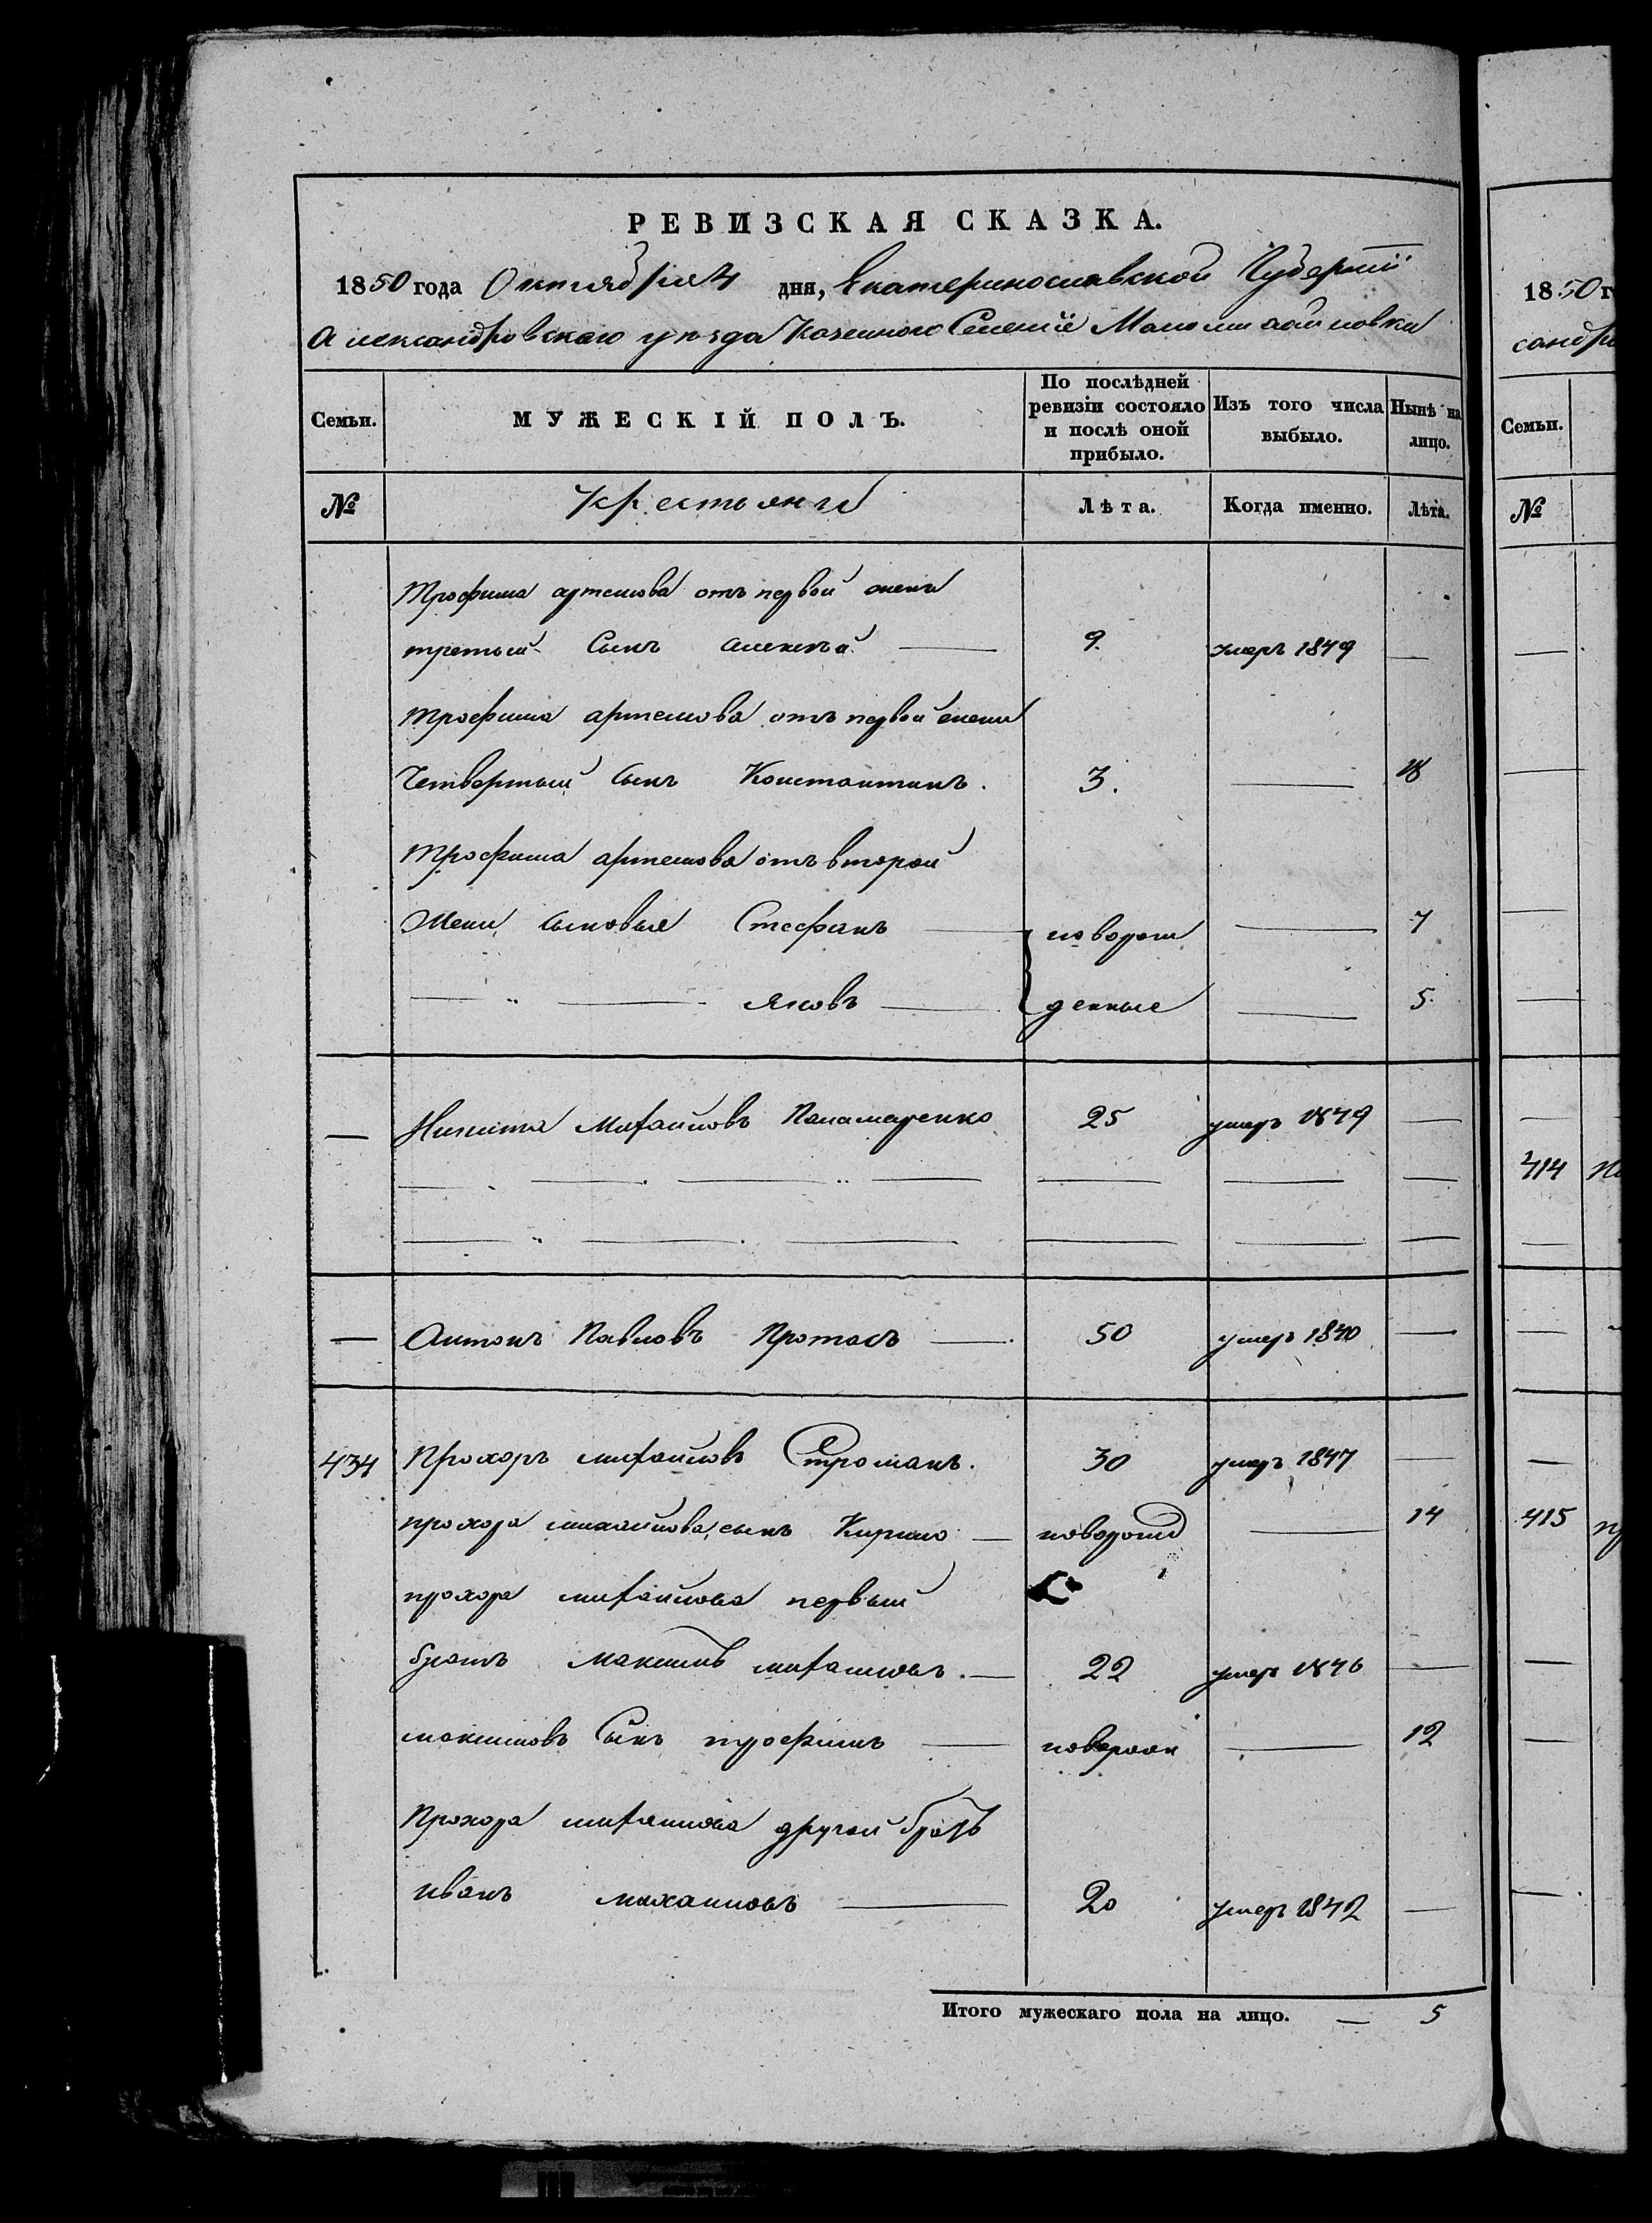 РЕВИЗСКАЯ СКАЗКА.
1850 года Октября 4 дня, Екатеринославской Губерніи
Александровскаго уезда Казенного Селеніе Маломихайловки
Семьи. МУЖЕСКІЙ ПОЛЪ. По послѣдней ревизіи состояло и послѣ оной прибыло. Изъ того числа выбыло. Нынѣ на лицо.
№ Крестьяне Лѣта. Когда именно. Лѣта.
Трофима артемова отъ первой жены
третьий Сынъ Алексѣй — 9. умеръ 1849 —
Трофима артемова отъ первой жены
Четвертый Сынъ Константинъ. 3. — 18
Трофима артемова отъ второй
Жены сыновья Стефанъ — новорож — 7
— " — Яковъ — денные — 5.
— Никита Михайловъ Панамаренко 25 умеръ 1849 —
— Антонъ Павловъ Протасъ — 50 умеръ 1840 —
434 Прохоръ михайловъ Строманъ. 30 умеръ 1847 —
прохора михайлова, сынъ Кирило — новорожд — 14
прохора михайлова первый
братъ Максимъ михайловъ. — 22 умеръ 1846 —
максимовъ Сынъ трофимъ — новорож — 12
Прохора михайлова другой братъ
иванъ михайловъ — 20 умеръ 1842 —
Итого мужескаго пола на лицо. — 5
1850 г
сандро
Семьи.
№
414
415